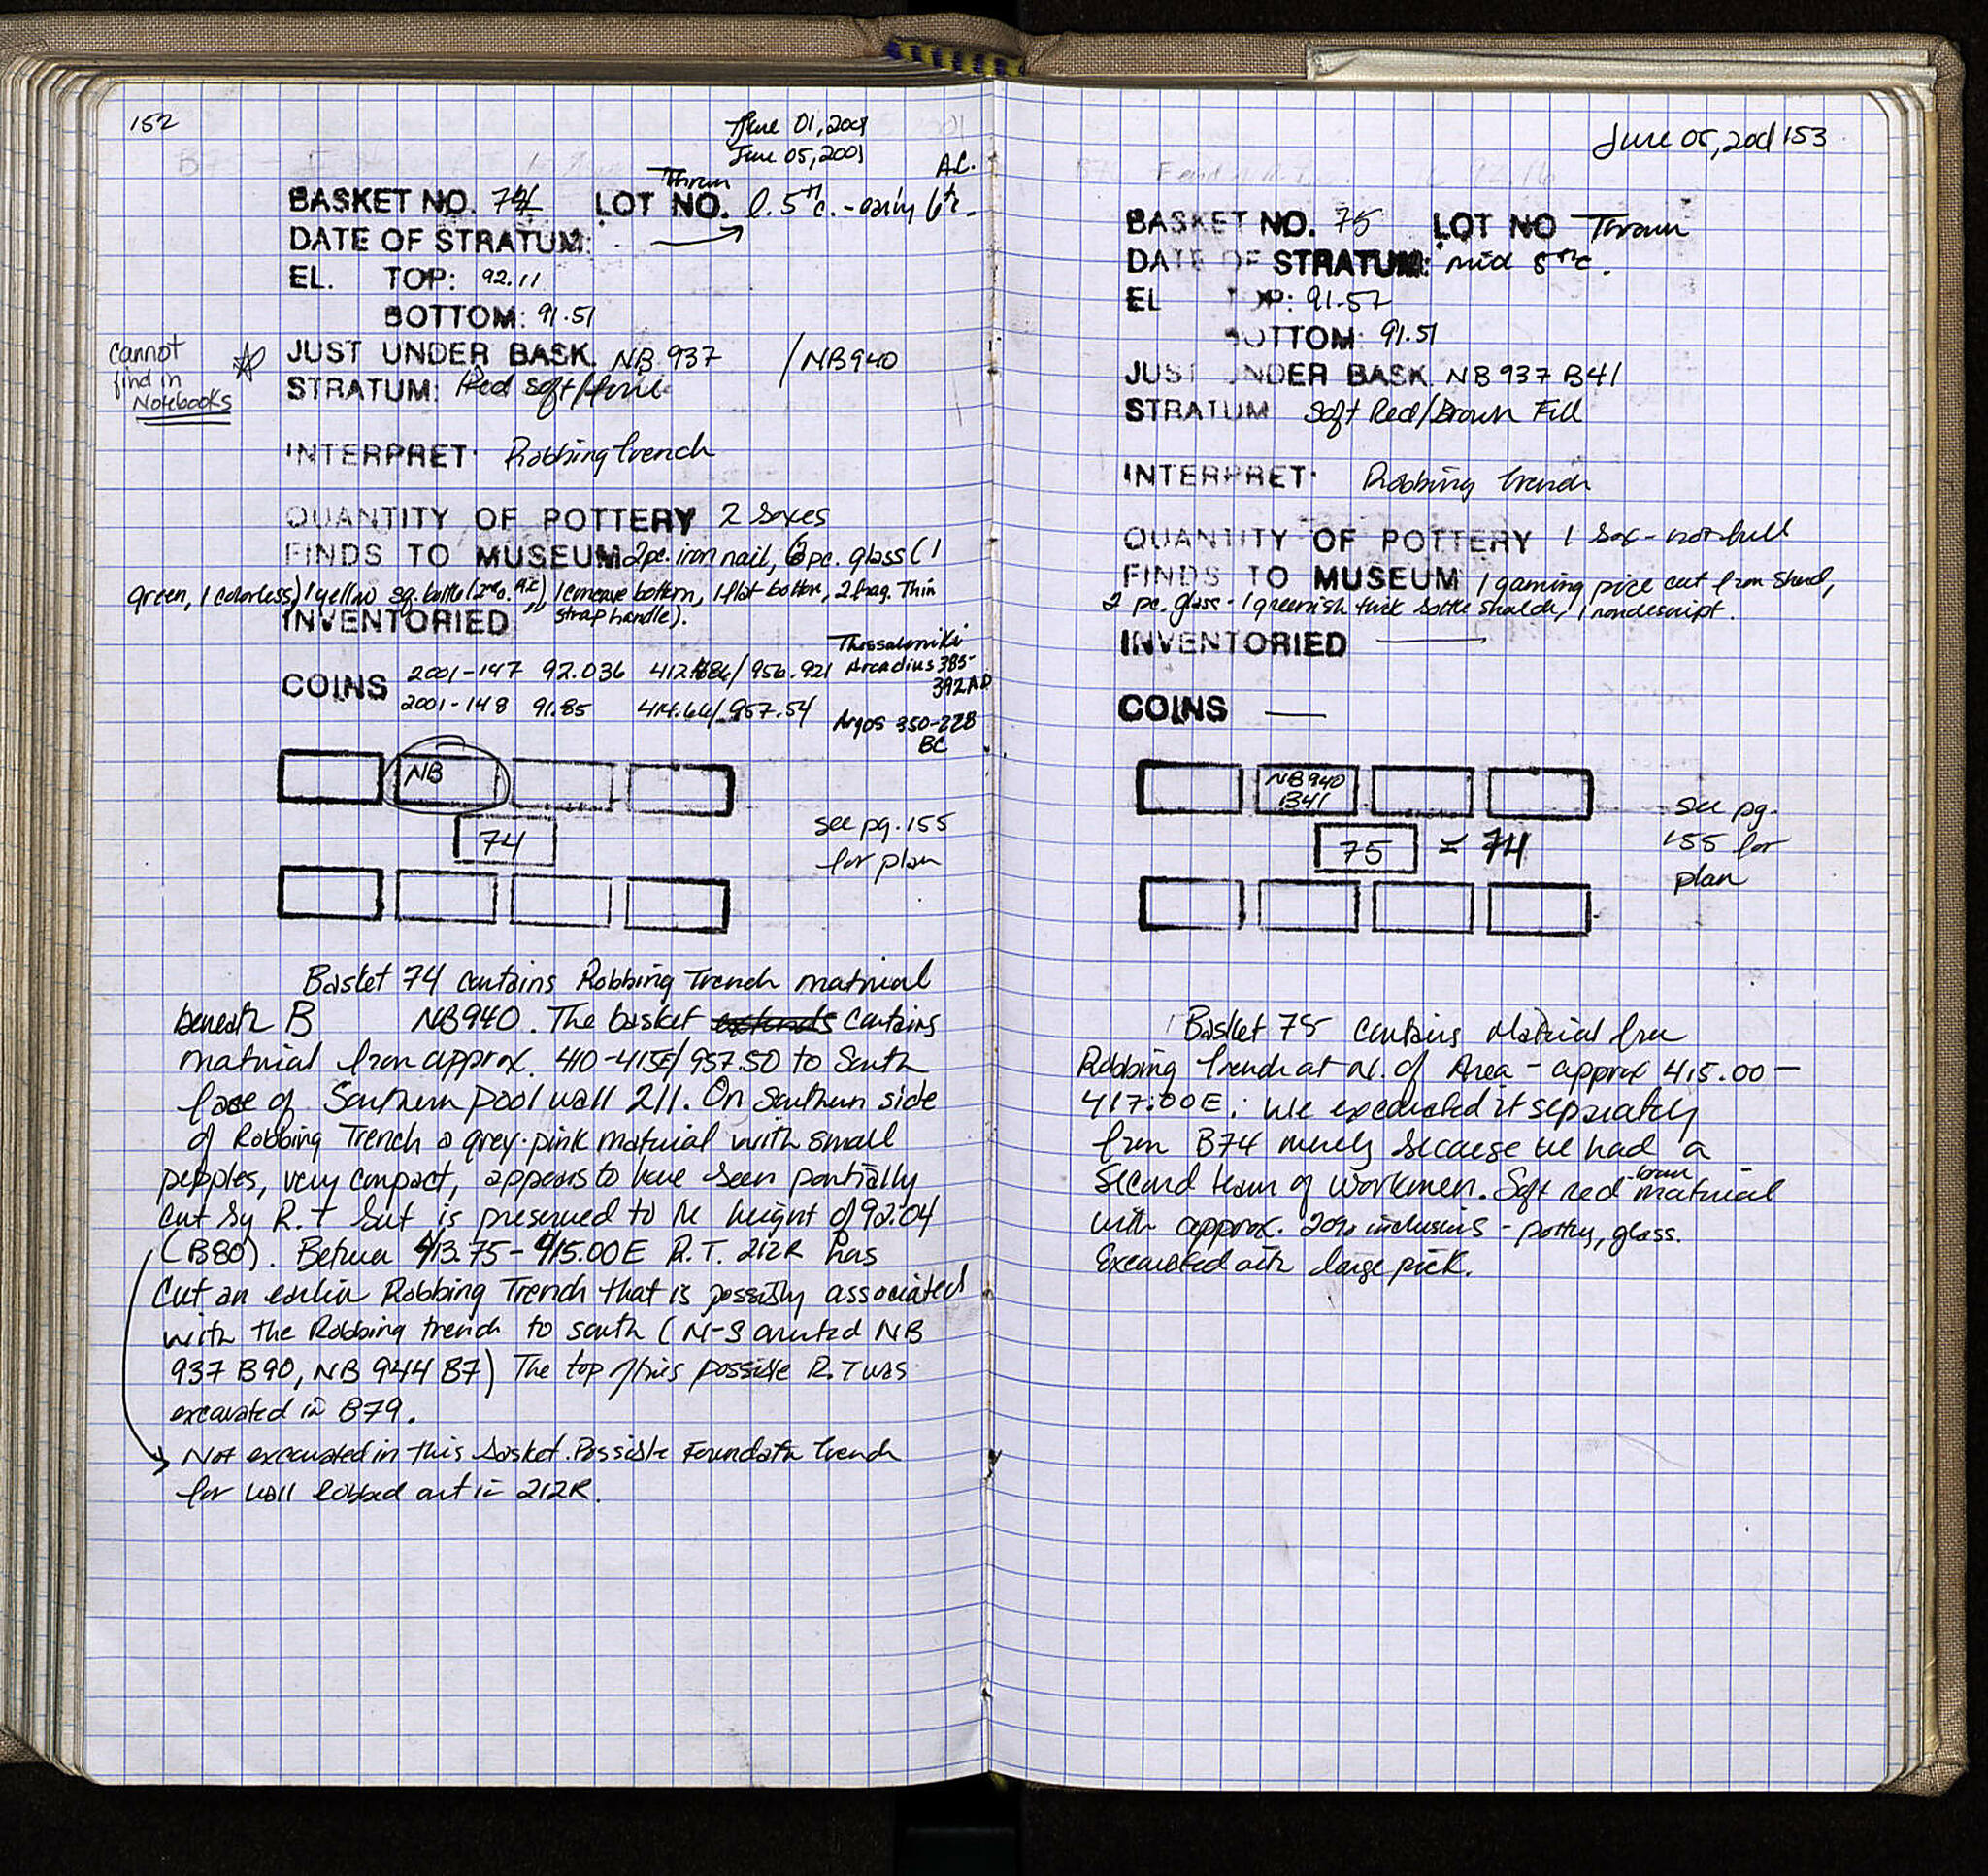 152
June 01, 2001
June 05, 2001
A.C.
Thrown
BASKET NO. 74 LOT NO. l. 5th c. - early 6th.
DATE OF STRATUM:
EL. TOP: 92.11
BOTTOM: 91.51
cannot
find in
Notebooks
JUST UNDER BASK. NB 937 / NB940
STRATUM: Red soft/
INTERPRET: Robbing trench
QUANTITY OF POTTERY 2 boxes
FINDS TO MUSEUM 2pc. iron nail, 6 pc. glass (1
green, 1 colorless) 1 yellow sq. bottle (2nd c. AC) 1 concave bottom, 1 flat bottom, 2 frag. Thin
strap handle).
INVENTORIED
Thessaloniki
COINS 2001-147 92.036 /956.921 Arcadius 383-
392 AD
2001-148 91.85 414.66/957.54 Argos 350-228
BC
NB
74
see pg. 155
for plan
Basket 74 contains Robbing Trench material
beneath B NB940. The basket extends contains
material from approx. 410-415E/957.50 to South
face of Southern pool wall 211. On Southern side
of Robbing Trench a grey-pink material with small
pepples, very compact, appears to have been partially
cut by R.T but is preserved to the height of 92.04
(B80). Between 413.75-415.00E R.T. 212R has
cut an earlier Robbing Trench that is possibly associated
with the Robbing trench to south (N-S oriented NB
937 B90, NB 944 B7) The top of this possible R.T was
excavated in B79.
Not excavated in this basket. Possible Foundatn trench
for wall robbed out in 212R.
June 05, 2001 153
BASKET NO. 75 LOT NO Thrown
DATE OF STRATUM: mid 5th c.
EL TOP: 91.57
BOTTOM: 91.51
JUST UNDER BASK. NB 937 B41
STRATUM Soft Red/Brown Fill
INTERPRET: Robbing trench
QUANTITY OF POTTERY 1 box - not full
FINDS TO MUSEUM 1 gaming piece cut from sherd,
2 pc. glass - 1 greenish thick bottle shoulder, 1 nondescript.
INVENTORIED —
COINS —
NB940
B41
75 = 74
see pg.
155 for
plan
Basket 75 contains Material from
Robbing trench at of Area - approx 415.00 -
417.00E. We excavated it separately
from B74 merely because we had a
Second team of workmen. Soft red-brown material
with approx. 20% inclusions - pottery, glass.
Excavated with large pick.